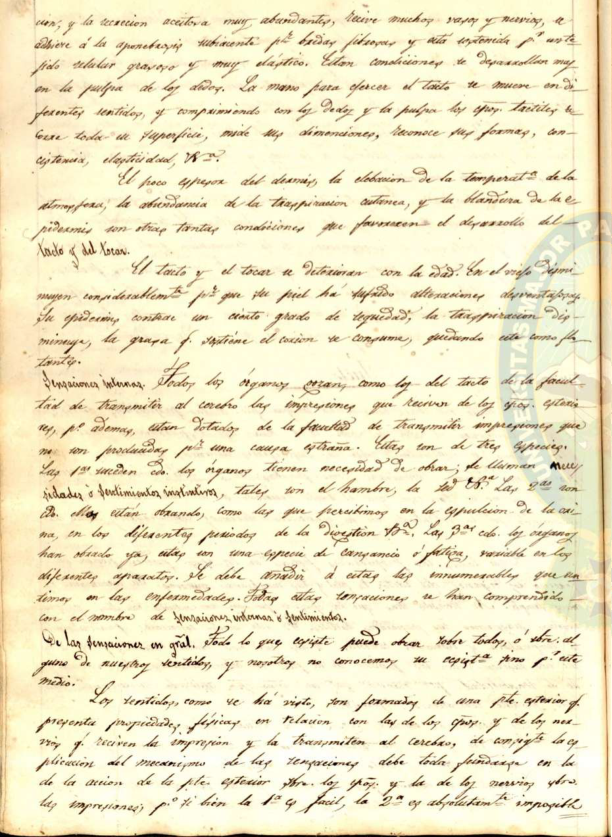 cion, y la secrecion aceitosa muy abundantes, recive muchos vasos y nervios, se
adhiere á la aponebrosis subyacente pr. bridas fibrosas y está sostenida pr. un te-
jido celular grasoso y muy elástico. Estas condiciones se desarrollan mas
en la pulpa de los dedos. La mano para ejercer el tacto se mueve en di-
ferentes sentidos, y comprimiendo con los dedos y la pulpa los cpos. tactiles re-
corre toda su superficie, mide sus dimenciones, reconoce sus formas, con-
cistencia, elasticidad, &a.
El poco espesor del dermis, la elebacion de la temperatra. de la
atmosfera, la abundancia de la traspiracion cutanea, y la blandura de la e-
pidermis son otras tantas condiciones que favorecen el desarrollo del
tacto y del tocar.
El tacto y el tocar se deterioran con la edad. En el viejo dismi-
nuyen considerablemte. pr. que su piel há sufrido alteraciones desventajosas.
Su epidermis contrae un cierto grado de sequedad, la traspiracion dis-
minuye, la grasa q. sostiene el corion se consume, quedando este como flo-
tante.
Sensaciones internas. Todos los órganos gozan, como los del tacto de la facul-
tad de transmitir al cerebro las impresiones que reciven de los cpos. esterio-
res, po. ademas, estan dotados de la facultad de transmitir impresiones que
no son producidas pr. una causa estraña. Estas son de tres especies.
Las 1as. suceden cdo. los órganos tienen necesidad de obrar; se llaman nece-
sidades ó sentimientos instintivos, tales son el hambre, la sed &a. Las 2as. son
cdo. ellos están obrando, como las que percibimos en la espulcion de la ori-
na, en los diferentes periodos de la digestion &a. Las 3as. cdo. los órganos
han obrado ya, estas son una especie de cansancio ó fatiga, variable en los
diferentes aparatos. Se debe añadir á estas las innumerables que sen-
timos en las enfermedades. Todas estas sensaciones se han comprendido
con el nombre de sensaciones internas ó sentimientos.
De las sensaciones en gral. Todo lo que ecsiste puede obrar sobre todos, ó sbre. al-
guno de nuestros sentidos, y nosotros no conocemos su ecsista. sino pr. este
medio.
Los sentidos, como se há visto, son formados de una pte. esterior q.
presenta propiedades físicas en relacion con las de los cpos. y de los ner-
vios q. reciven la impresion y la transmiten al cerebro, de consigte. la es-
plicacion del mecanismo de las sensaciones debe toda fundarse en la
de la accion de la pte. esterior sbre. los cpos. y la de los nervios sbre.
las impresiones, po. si bien la 1a. es facil, la 2a. es absolutamte. imposible